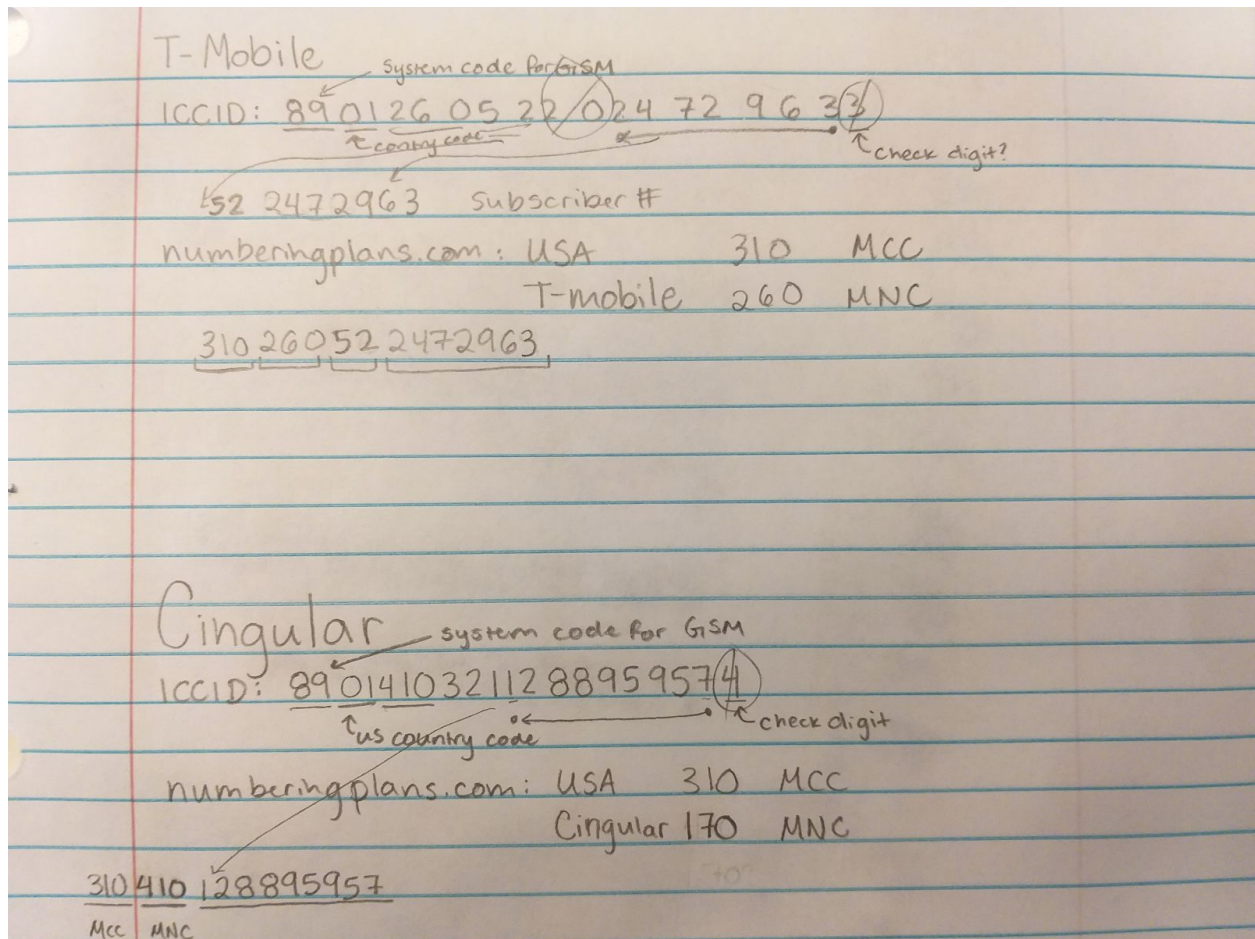 T-Mobile
system code for GSM
ICCID: 89 01 26 05 2 2 0 24 72 9 6 3 3
country code
check digit?
52 2472963 Subscriber #
numberingplans.com: USA 310 MCC
T-mobile 260 MNC
310 260 52 2472963
Cingular
system code for GSM
ICCID: 89 01 410 3211 2 8895957 4
us country code
check digit
numberingplans.com: USA 310 MCC
Cingular 170 MNC
310 410 128895957
MCC MNC